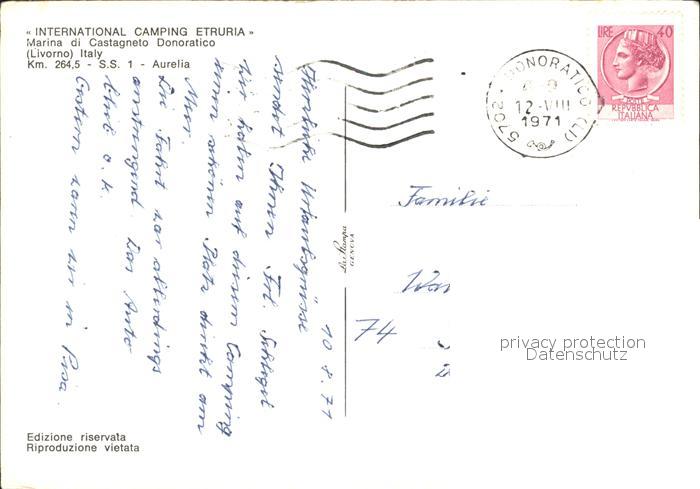 « INTERNATIONAL CAMPING ETRURIA »
Marina di Castagneto Donoratico
(Livorno) Italy
Km. 264,5 - S.S. 1 - Aurelia
LIRE 40
POSTE
REPVBBLICA
ITALIANA
57024 DONORATICO (LI)
12-VIII
1971
10. 8. 71
Herzliche Urlaubsgrüsse
sendet Ihnen Frl.
Wir haben auf diesem Camping
einen schönen Platz direkt am
Meer.
Die Fahrt war allerdings
anstrengend. Das Auto
blieb o. k.
Gestern waren wir in Pisa.
La Stampa
GENOVA
Familie
74
privacy protection
Datenschutz
Edizione riservata
Riproduzione vietata